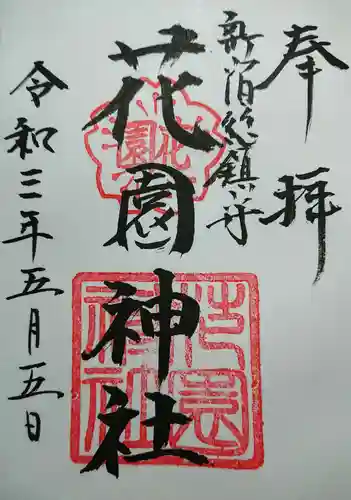 奉拝
新宿総鎮守
花園神社
令和三年五月五日
花園
花園神社